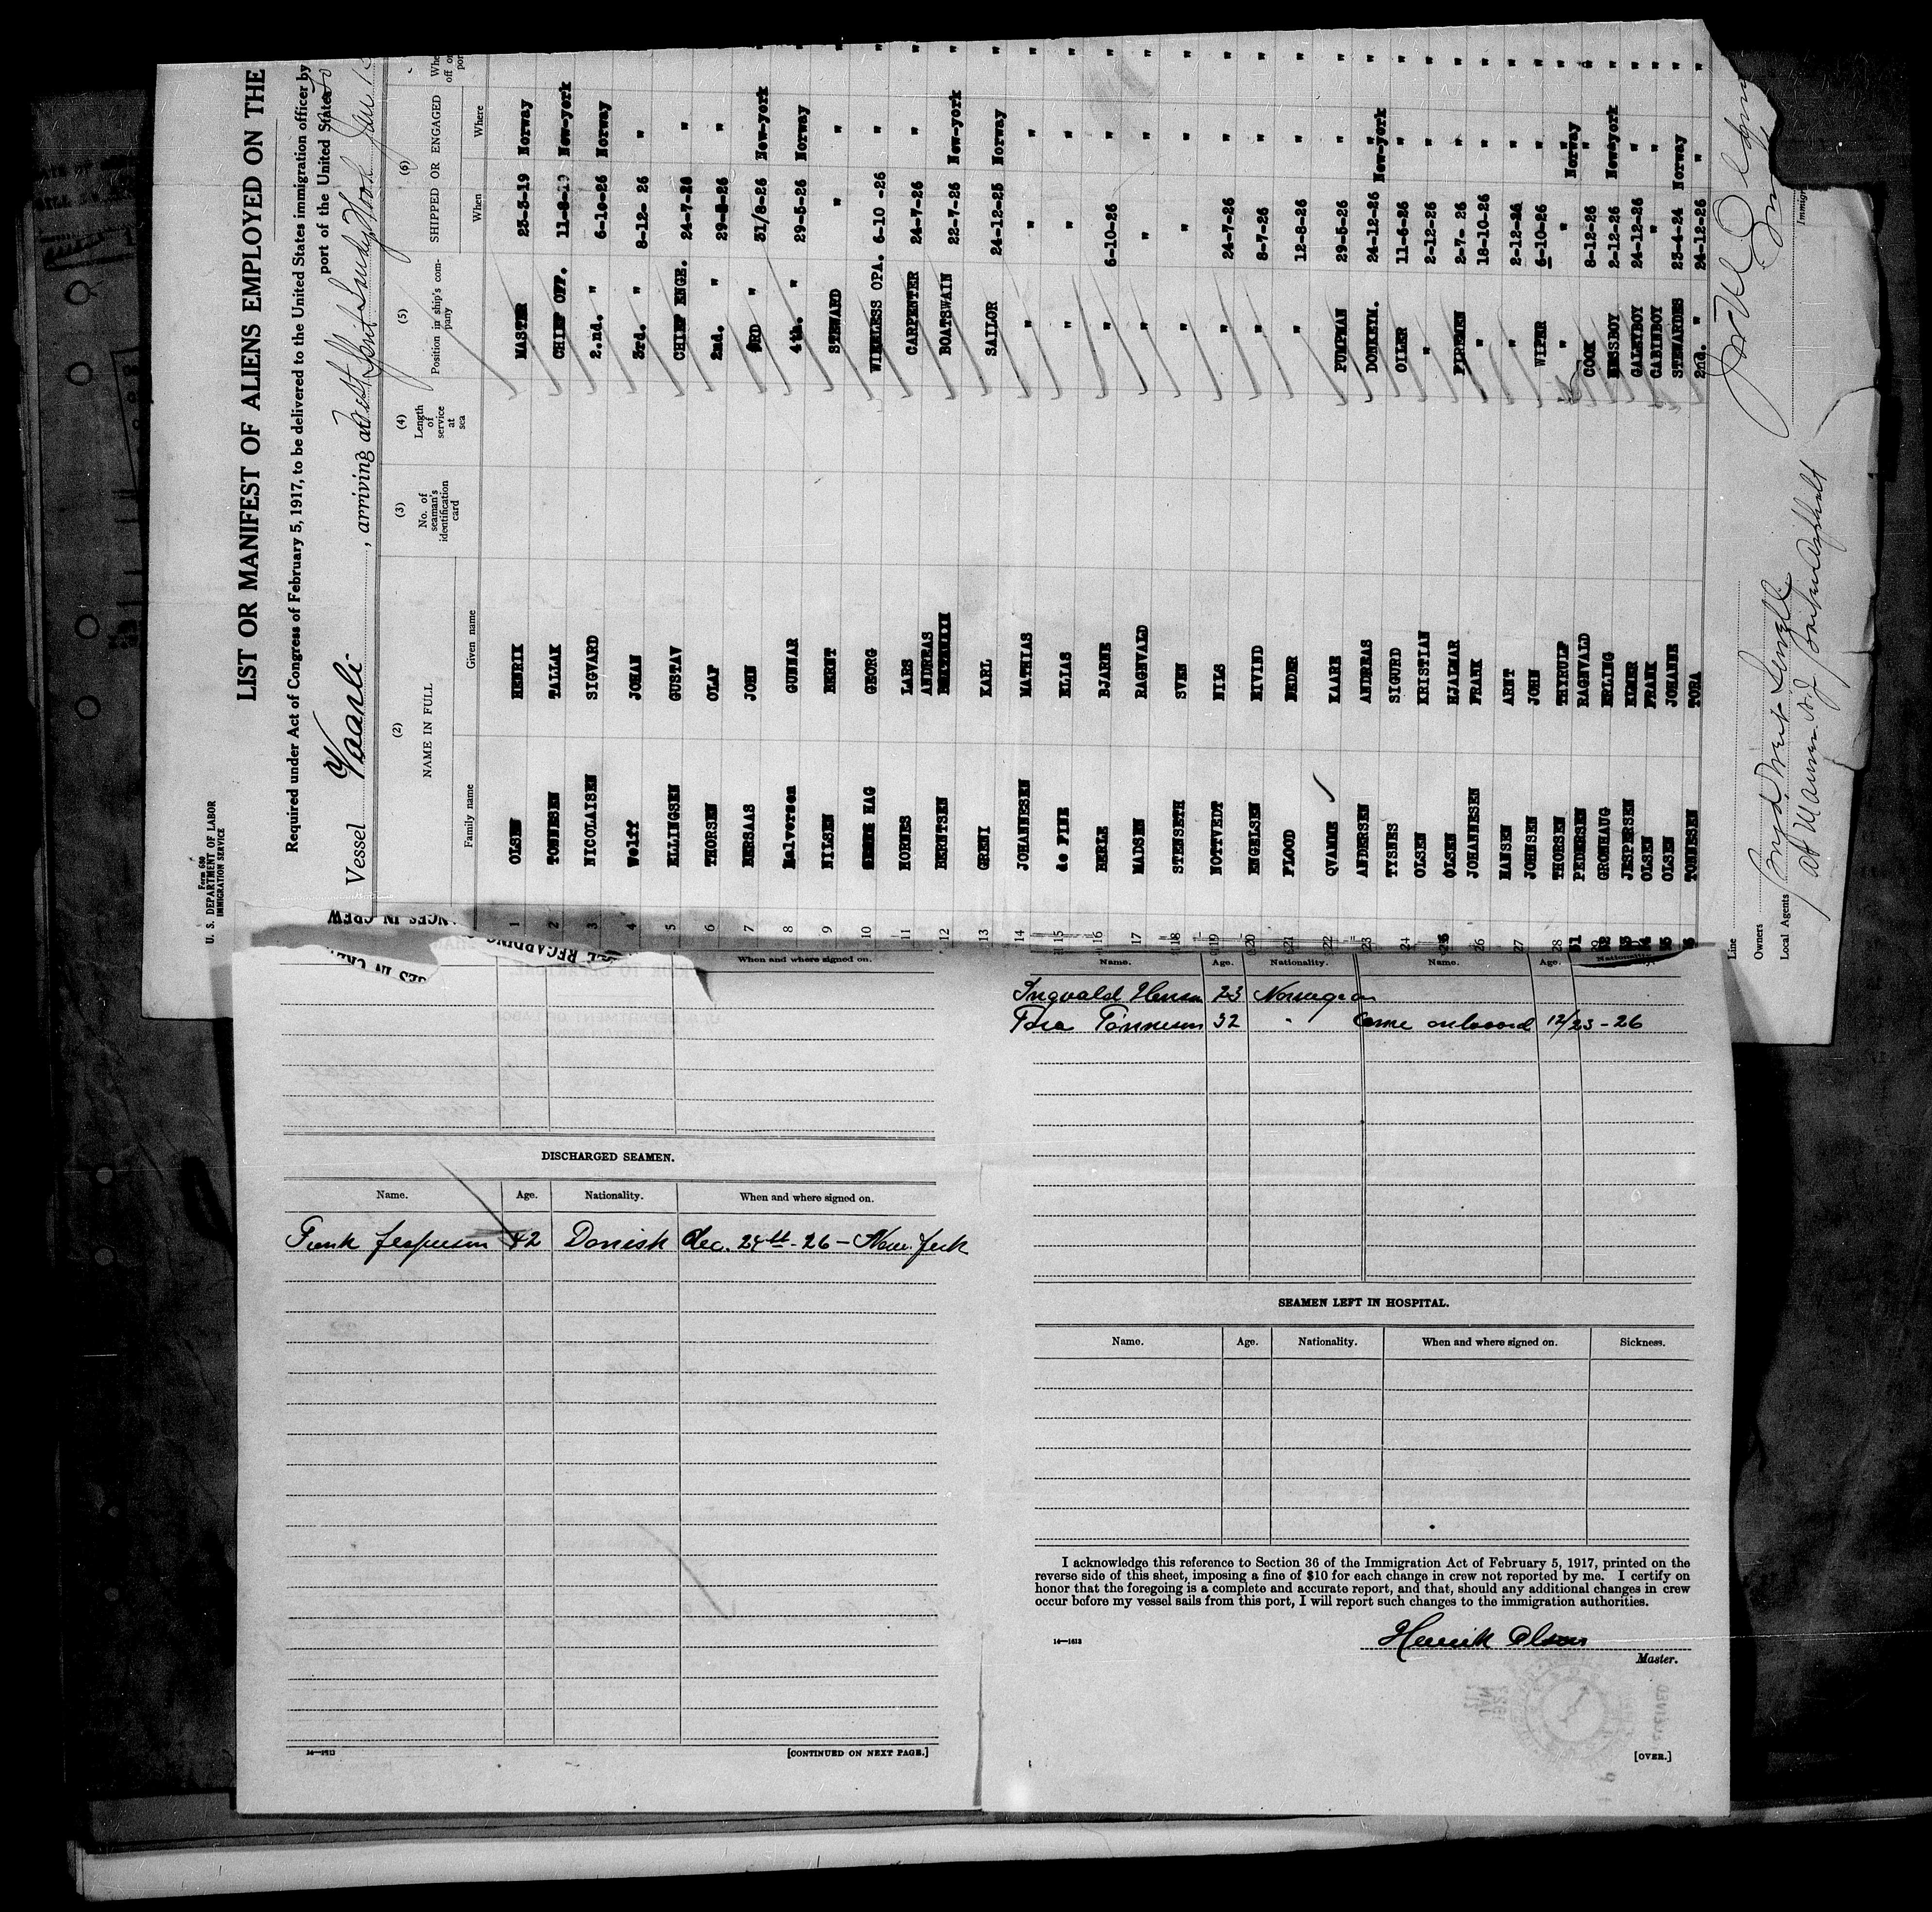 Form 680
U. S. DEPARTMENT OF LABOR
IMMIGRATION SERVICE
LIST OR MANIFEST OF ALIENS EMPLOYED ON THE
Required under Act of Congress of February 5, 1917, to be delivered to the United States immigration officer by
port of the United States
Vessel Vaarli, arriving at
(2) (3) (4) (5) (6)
NAME IN FULL No. of seaman's identification card Length of service at sea Position in ship's company SHIPPED OR ENGAGED
Family name Given name When Where
1 OLSEN HENRIK MASTER 23-3-19 Norway "
2 TONNESEN TALLAK CHIEF OFF. New-york "
3 NICOLAISEN SIGVARD 2.nd. " 6-10-26 Norway "
4 Wolff JOHAN 3rd. " 8-12- 26 " "
5 ELLINGSEN GUSTAV CHIEF ENGE. 24-7-26 " "
6 THORSEN OLAF 2nd. " " "
7 BERSAAS JOHN 3RD " 31/8-26 New-york "
8 Halvorsen GUNNAR 4th. " 29-5-26 Norway "
9 NILSEN BERNT STEWARD " " "
10 HAG GEORG WIRELESS OPA. 6-10 -26 " "
11 HORNES LARS CARPENTER 24-7-26 " "
12 BERNTSEN ANDREAS BOATSWAIN 22-7-26 New-york "
13 GRENI KARL SAILOR 24-12-25 Norway "
14 JOHANNESEN MATHIAS " " " "
15 de FINE ELIAS " " " "
16 BERLE BJARNE " 6-10-26 " "
17 MADSEN RAGNVALD " " " "
18 STENSETH SVEN " " " "
19 NOTTVEDT NILS " 24-7-26 " "
20 ENGELSEN EIVIND " 8-7-26 " "
21 FLOOD PEDER " 12-8-26 " "
22 QVAMME KAARE PUMPMAN 29-5-26 " "
23 ANDERSEN ANDREAS DONKEYM. 24-12-26 New-york "
24 TYSNES SIGURD OILER 11-6-26 " "
25 OLSEN KRISTIAN " 2-12-26 " "
OLSEN HJALMAR FIREMEN 2-7- 26 " "
26 JOHANNESEN FRANK " 18-10-26 " "
27 HANSEN ARNT " 2-12-26 " "
JOHNSEN JOHN WIPER 6-10-26 " "
28 THORSEN THYRULF " " " "
31 PEDERSEN RAGNVALD COOK 8-12-26 Norway "
32 GRONHAUG ERLING MESSBOY 2-12-26 New-york "
33 JESPERSEN ELMER GALEYBOY 24-12-26 " "
34 OLSEN FRANK CABINBOY " " "
35 OLSEN JOHANNE STEWARDES 23-4-24 Norway "
36 TONNESEN TORA 2nd. " 24-12-26 " "
Line
Owners
Local Agents
When and where signed on.
DISCHARGED SEAMEN.
Name. Age. Nationality. When and where signed on.
42 Danish Dec. 24th - 26 -
14—1613
[CONTINUED ON NEXT PAGE.]
Name. Age. Nationality. Name. Age. Nationality.
Ingvald 23 Norwegian
32 " Came onboord 12/23 - 26
SEAMEN LEFT IN HOSPITAL.
Name. Age. Nationality. When and where signed on. Sickness.
I acknowledge this reference to Section 36 of the Immigration Act of February 5, 1917, printed on the
reverse side of this sheet, imposing a fine of $10 for each change in crew not reported by me. I certify on
honor that the foregoing is a complete and accurate report, and that, should any additional changes in crew
occur before my vessel sails from this port, I will report such changes to the immigration authorities.
14—1613
Henrik Olsen
Master.
[OVER.]